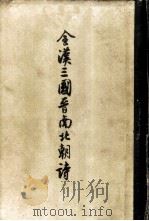 全漢三國晉南北朝詩